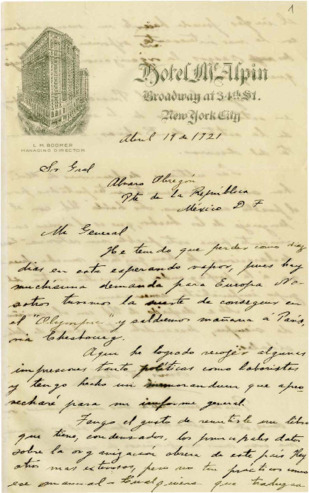 1
Hotel McAlpin
Broadway at 34th St.
New York City
L. M. BOOMER
MANAGING DIRECTOR
Abril 19 de 1921
Sr Gral
Alvaro Obregón
Pte de la República
México D. F
Mi General
He tenido que perder como
días en esta esperando vapor, pues hay
muchisima demanda para Europa No
sotros tuvimos la suerte de conseguir en
el "Olympic" y saldremos mañana a París,
via Cherbourg.
Aqui he logrado recojer algunas
impresiones tanto políticas como laboristas
y tengo hecho un memorandum que apro
vecharé para mi informe genial.
Tengo el gusto de remitirle un libro
que tiene, condensados, los principales datos
sobre la organizacion obrera de este pais Hay
otros mas extensos, pero no tan practicos como
ese manual. que trabaja